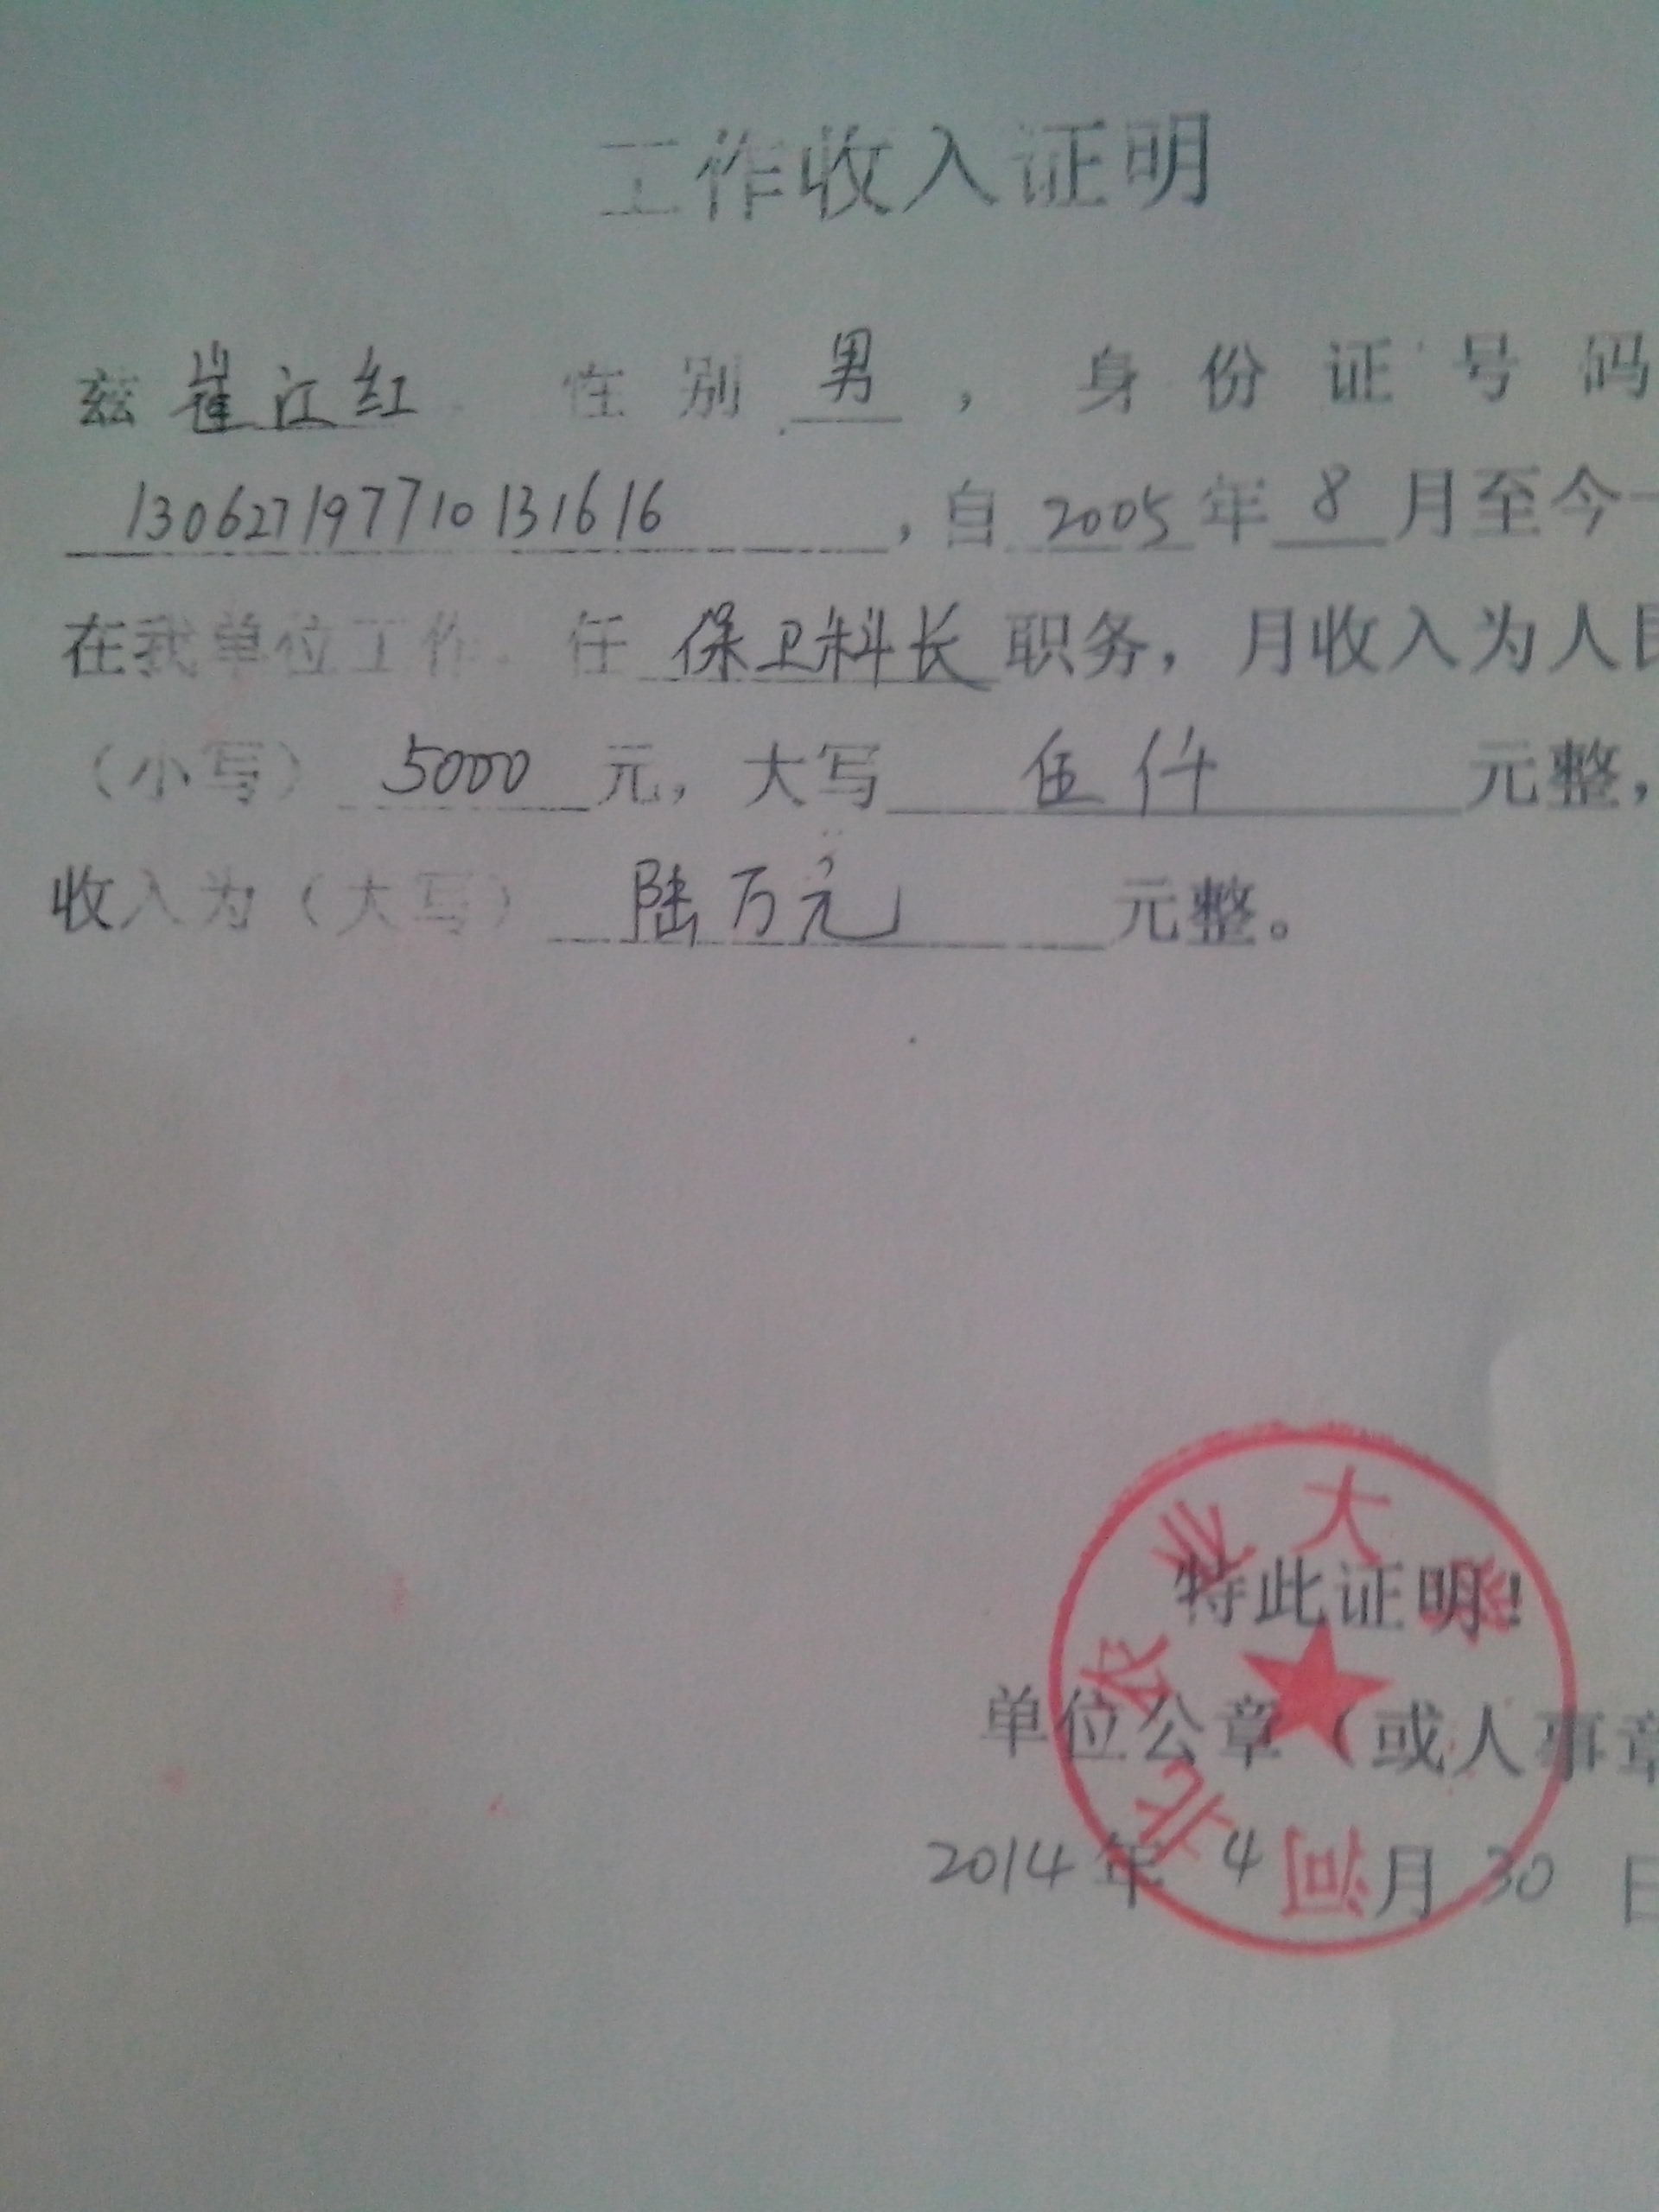 工作收入证明
兹 崔江红 性别 男 ，身份证号码
130627197710131616 ，自 2005 年 8 月至今
在我单位工作. 任 保卫科长 职务，月收入为人民
（小写） 5000 元，大写 伍仟 元整，
收入为（大写） 陆万元 元整。
特此证明！
单位公章（或人事章
2014 年 4 月 30 日